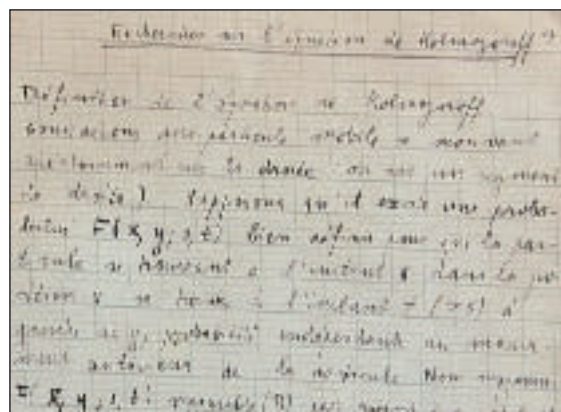 Recherches sur l'équation de Kolmogoroff
Définition de l'équation de Kolmogoroff
Considérons une particule mobile se mouvant
sur la droite (ou sur un segment
de droite). Supposons qu'il existe une proba-
bilité F(x, y; s, t) bien définie pour que la par-
ticule se trouvant à l'instant s dans la po-
sition x se trouve à l'instant t (>s) à
gauche de y, probabilité indépendante du mouve-
ment antérieur de la particule. Nous
F(x, y; s, t)